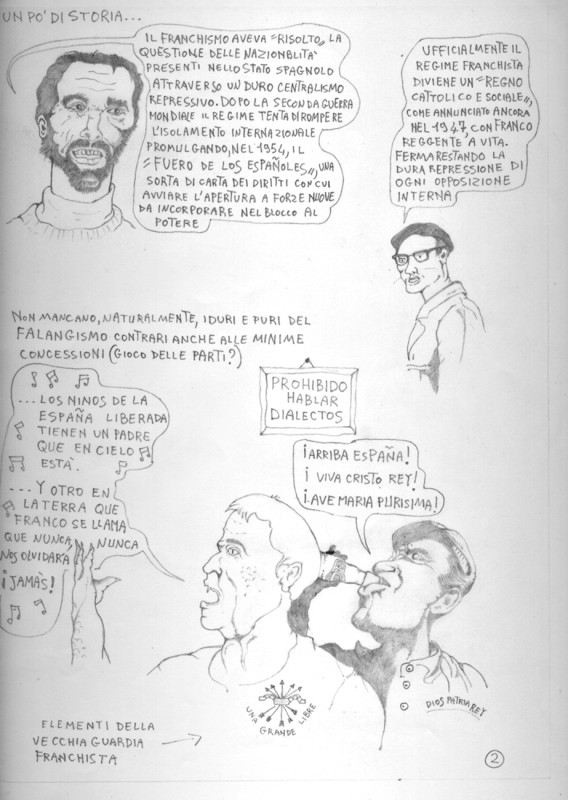 UN PO' DI STORIA...
IL FRANCHISMO AVEVA "RISOLTO" LA
QUESTIONE DELLE NAZIONBLITA'
PRESENTI NELLO STATO SPAGNOLO
ATTRAVERSO UN DURO CENTRALISMO
REPRESSIVO. DOPO LA SECONDA GUERRA
MONDIALE IL REGIME TENTA DI ROMPERE
L'ISOLAMENTO INTERNAZIONALE
PROMULGANDO, NEL 1954, IL
"FUERO DE LOS ESPAÑOLES", UNA
SORTA DI CARTA DEI DIRITTI CON CUI
AVVIARE L'APERTURA A FORZE NUOVE
DA INCORPORARE NEL BLOCCO AL
POTERE
UFFICIALMENTE IL
REGIME FRANCHISTA
DIVIENE UN "REGNO
CATTOLICO E SOCIALE",
COME ANNUNCIATO ANCORA
NEL 1947, CON FRANCO
REGGENTE A VITA.
FERMA RESTANDO LA
DURA REPRESSIONE DI
OGNI OPPOSIZIONE
INTERNA
NON MANCANO, NATURALMENTE, I DURI E PURI DEL
FALANGISMO CONTRARI ANCHE ALLE MINIME
CONCESSIONI (GIOCO DELLE PARTI?)
...LOS NINOS DE LA
ESPAÑA LIBERADA
TIENEN UN PADRE
QUE EN CIELO
ESTÀ.
...Y OTRO EN
LA TERRA QUE
FRANCO SE LLAMA
QUE NUNCA, NUNCA
NOS OLVIDARÀ
¡JAMÀS!
PROHIBIDO
HABLAR
DIALECTOS
¡ARRIBA ESPAÑA!
¡VIVA CRISTO REY!
¡AVE MARIA PURISIMA!
UNA GRANDE LIBRE
DIOS PATRIA REY
ELEMENTI DELLA
VECCHIA GUARDIA
FRANCHISTA
2